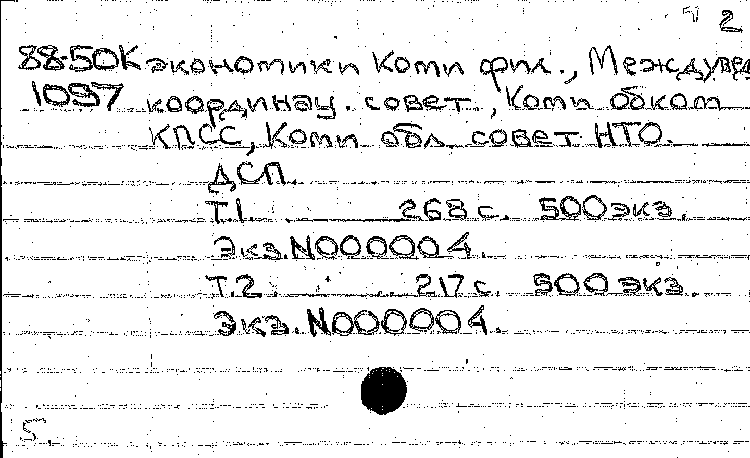 2
88-50К экономики Коми фил., Междувед
1097 координац. совет, Коми обком
КПСС, Коми обл. совет НТО.
ДСП.
Т.1. 268 с. 500 экз.
Экз. N000004.
Т.2. 217 с. 500 экз.
Экз. N000004.
5.